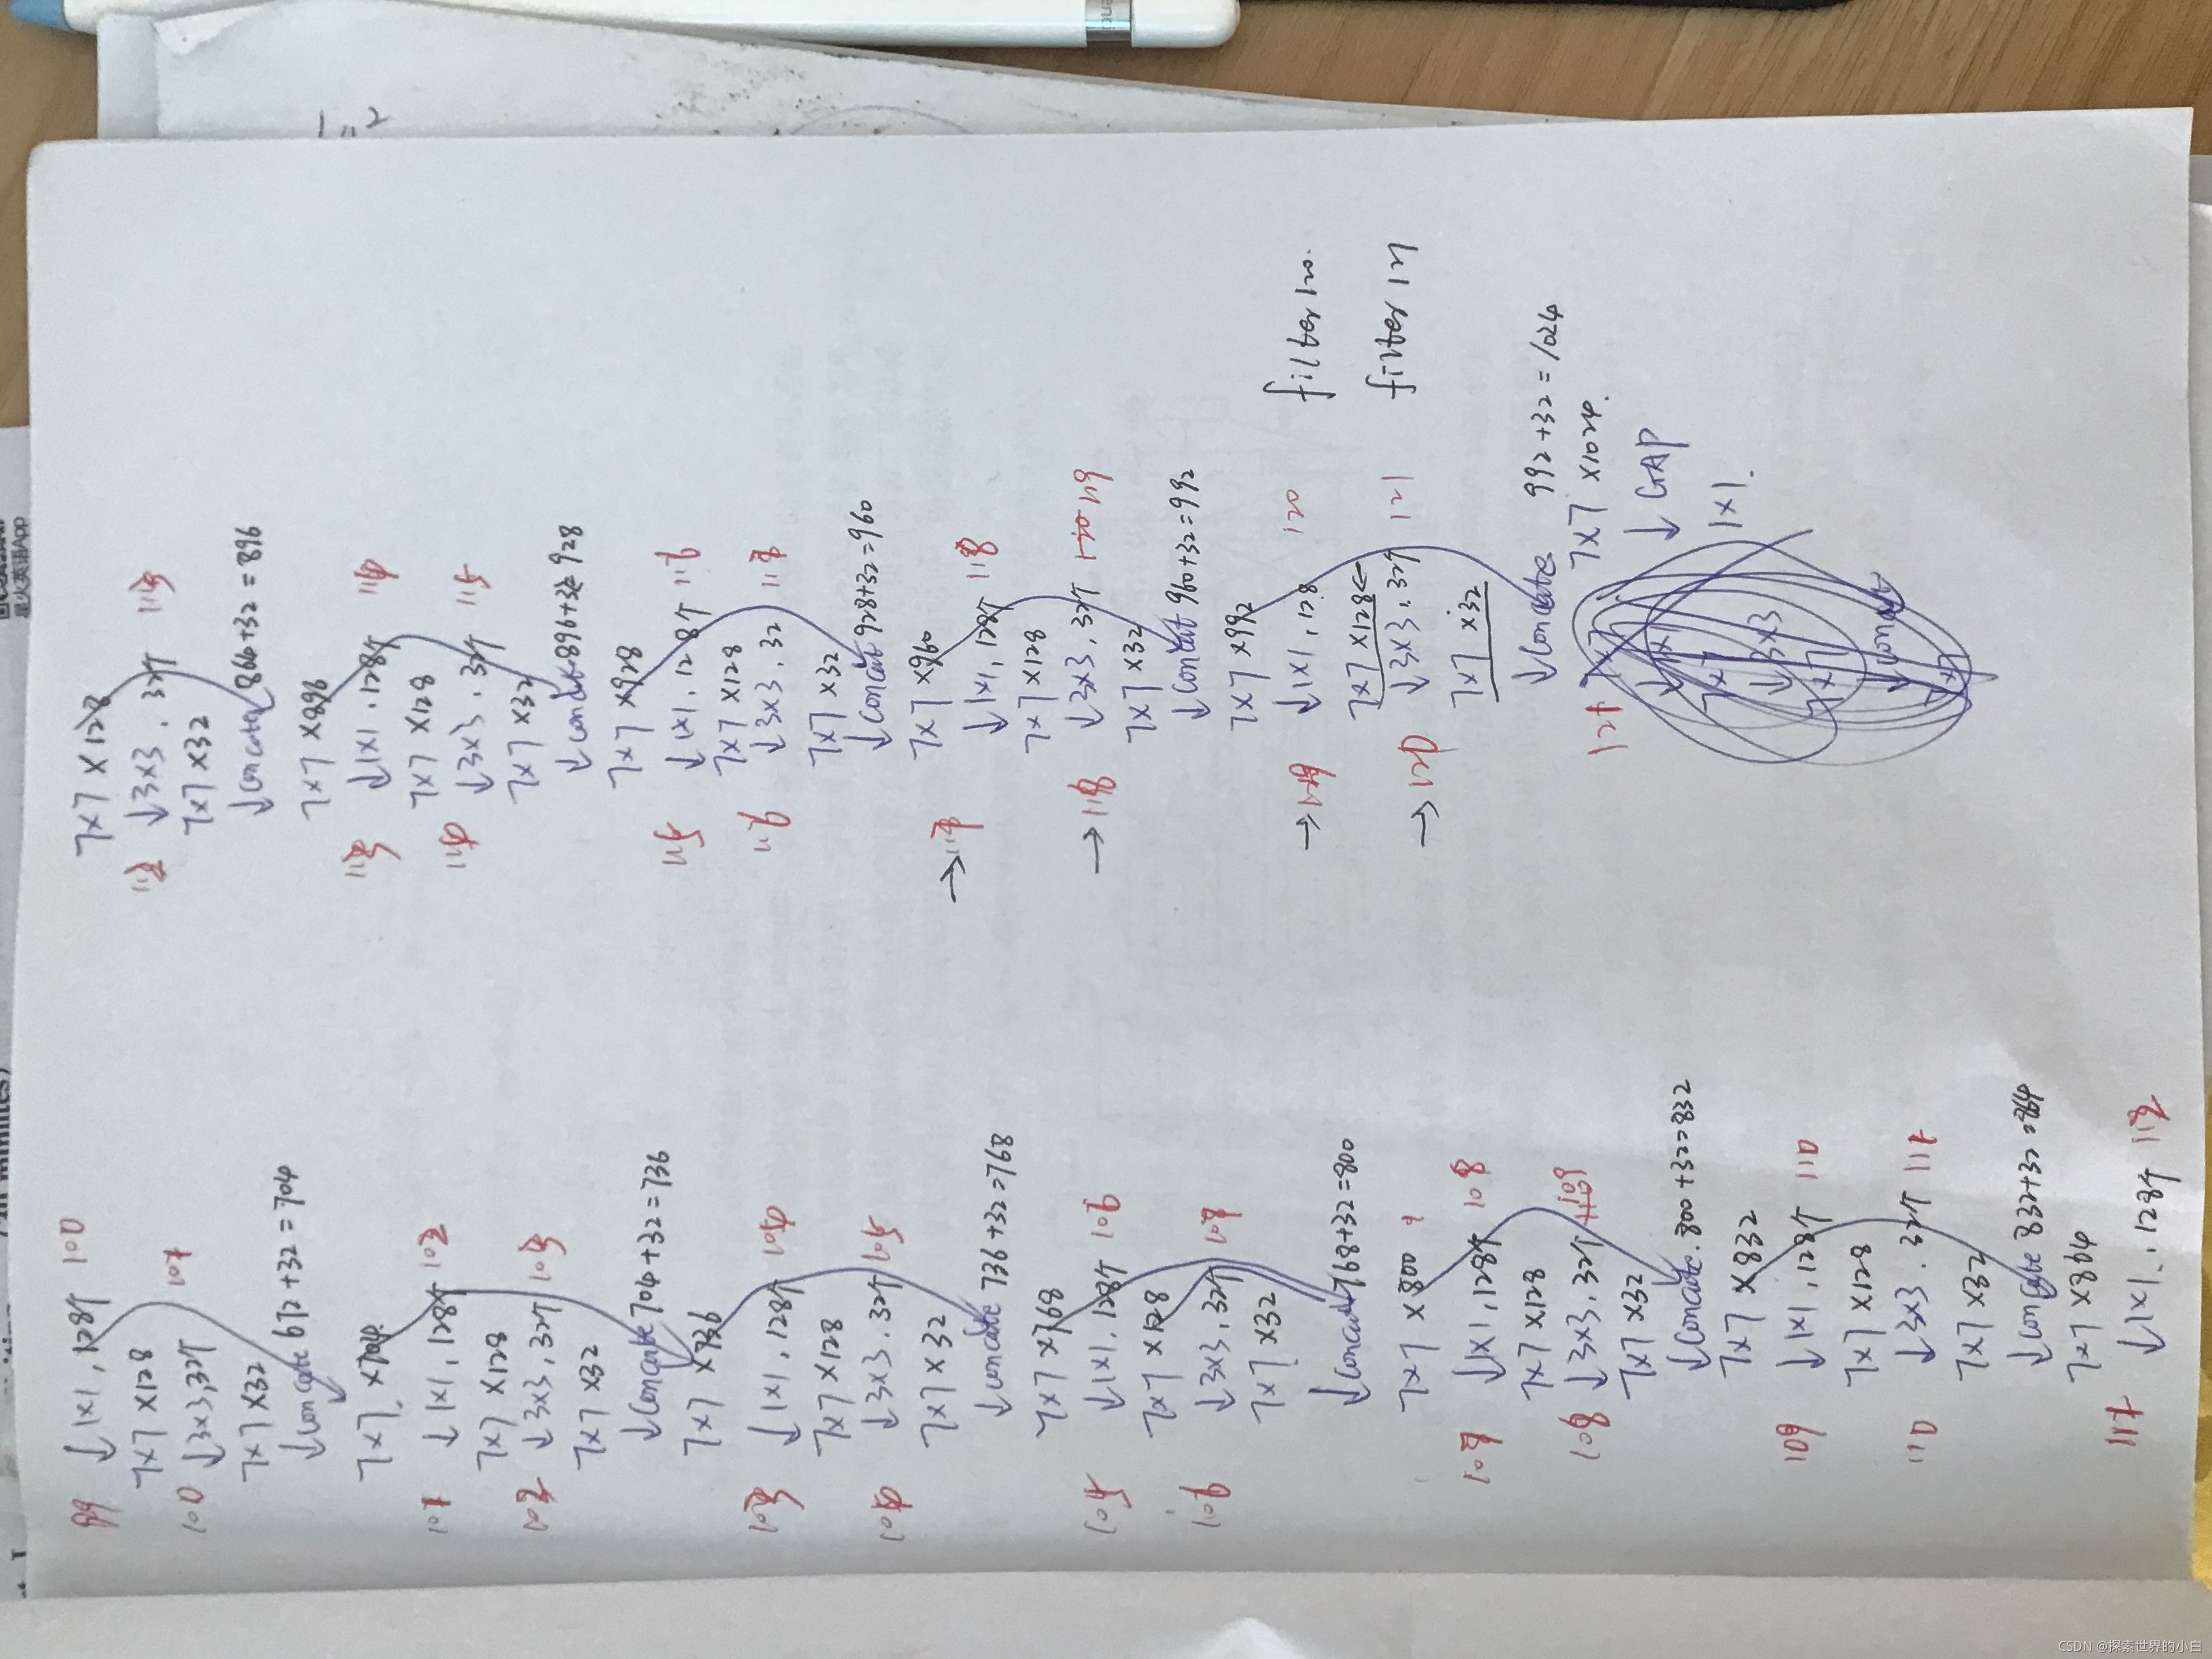 99 ↓1×1, 128个 100
7×7×128
100 ↓3×3, 32个 101
7×7×32
↓concate 672+32=704
7×7×704
101 ↓1×1, 128个 102
7×7×128
102 ↓3×3, 32个 103
7×7×32
↓concate 704+32=736
7×7×736
103 ↓1×1, 128个 104
7×7×128
104 ↓3×3, 32个 105
7×7×32
↓concate 736+32=768
7×7×768
105 ↓1×1, 128个 106
7×7×128
106 ↓3×3, 32个 107
7×7×32
↓concate 768+32=800
7×7×800
107 ↓1×1, 128个 108
7×7×128
108 ↓3×3, 32个 109
7×7×32
↓concate 800+32=832
7×7×832
109 ↓1×1, 128个 110
7×7×128
110 ↓3×3, 32个 111
7×7×32
↓concate 832+32=864
7×7×864
111 ↓1×1, 128个 112
7×7×128
112 ↓3×3, 32个 113
7×7×32
↓concate 864+32=896
7×7×896
113 ↓1×1, 128个 114
7×7×128
114 ↓3×3, 32个 115
7×7×32
↓concate 896+32=928
7×7×928
115 ↓1×1, 128个 116
7×7×128
116 ↓3×3, 32 117
7×7×32
↓concate 928+32=960
7×7×960
→117 ↓1×1, 128个 118
7×7×128
→118 ↓3×3, 32个 120 119
7×7×32
↓concat 960+32=992
7×7×992
→119 ↓1×1, 128 120 filter 120.
7×7×128←
→120 ↓3×3, 32个 121 filter 121
7×7×32
↓concate 992+32=1024
7×7×1024.
121 ↓GAP
1×1.
=2
星火英语App
CSDN @探索世界的小白